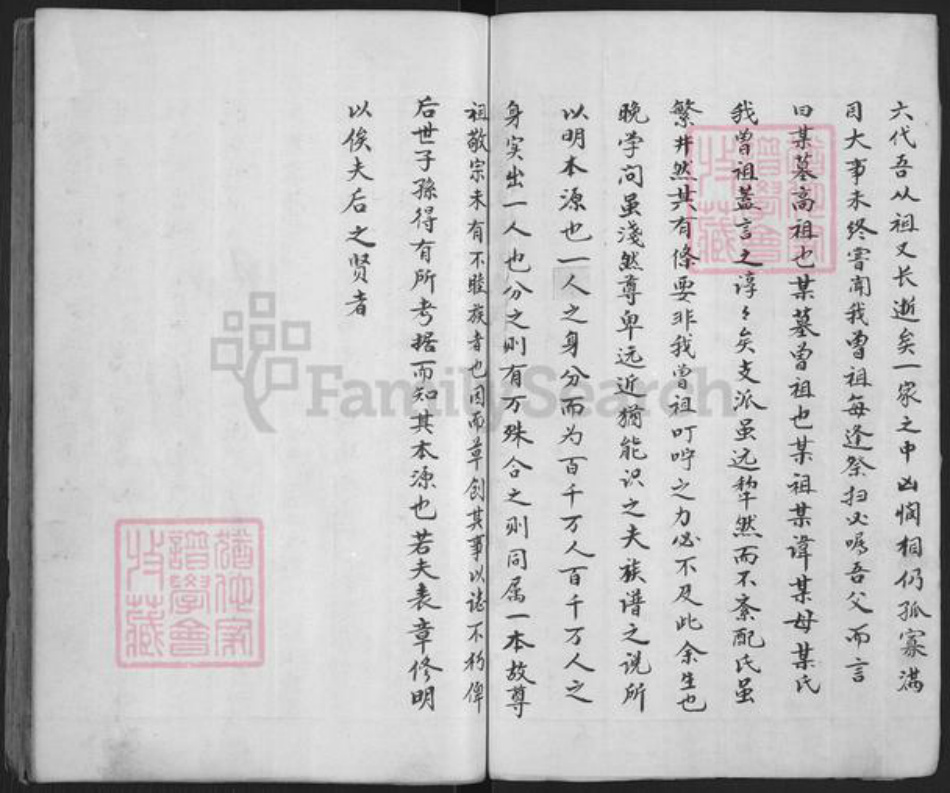 六代吾从祖又长逝矣一家之中凶悯相仍孤寡满
目大事未终窨闻我曾祖每逢祭扫必嘱吾父而言
曰某墓高祖也某墓曾祖也某祖某諱某母某氏
我曾祖盖言之谆々矣支派虽远犂然而不紊配氏虽
繁井然其有條要非我曾祖叮咛之力必不及此余生也
晚学问虽淺然尊卑远近犹能识之夫族谱之说所
以明本源也一人之身分而为百千万人百千万人之
身实出一人也分之则有万殊合之则同属一本故尊
祖敬宗未有不睦族者也因而草创其事以誌不朽俾
后世子孫得有所考据而知其本源也若夫表章修明
以俟夫后之贤者
譜學會
收藏
譜學會
收藏
FamilySearch